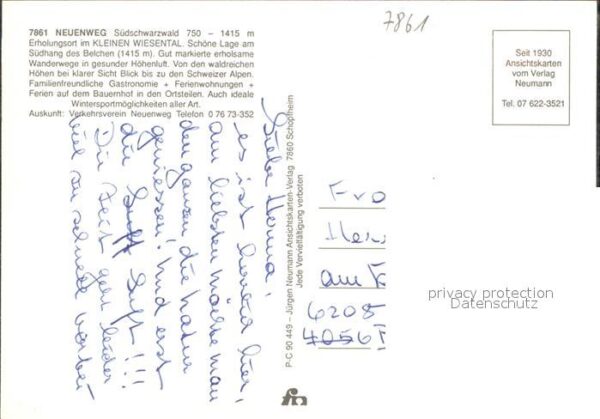 7861
7861 NEUENWEG Südschwarzwald 750 – 1415 m
Erholungsort im KLEINEN WIESENTAL. Schöne Lage am
Südhang des Belchen (1415 m). Gut markierte erholsame
Wanderwege in gesunder Höhenluft. Von den waldreichen
Höhen bei klarer Sicht Blick bis zu den Schweizer Alpen.
Familienfreundliche Gastronomie + Ferienwohnungen +
Ferien auf dem Bauernhof in den Ortsteilen. Auch ideale
Wintersportmöglichkeiten aller Art.
Auskunft: Verkehrsverein Neuenweg Telefon 0 76 73-352
Seit 1930
Ansichtskarten
vom Verlag
Neumann
Tel. 07 622-3521
Liebe Mama,
es ist hier,
am liebsten möchte man
den ganzen die Natur
geniessen! Und erst
die Luft Luft!!!
Die Zeit geht leider
viel zu schnell vorbei
P-C 90 449 – Jürgen Neumann Ansichtskarten-Verlag 7860 Schopfheim
Jede Vervielfältigung verboten
am
6208
4056
privacy protection
Datenschutz